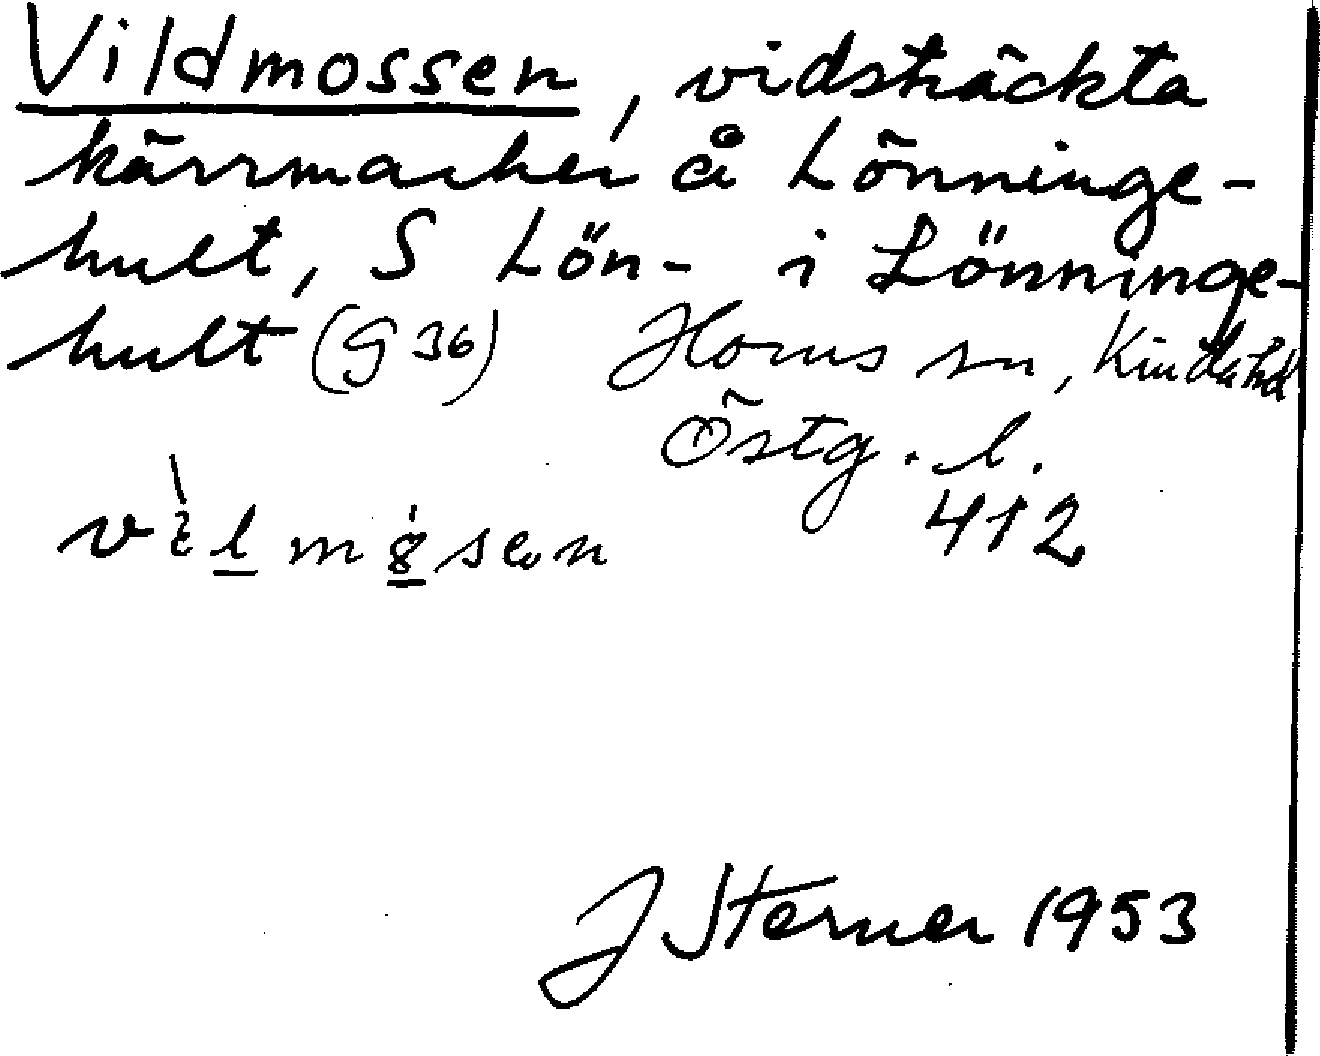 Vildmossen, vidsträckta
kärrmarker å Lönninge-
hult, S Lön- i Lönninge-
hult (G 36) Horns sn, Kinda hd
Östg. l.
412
J Sterner 1953